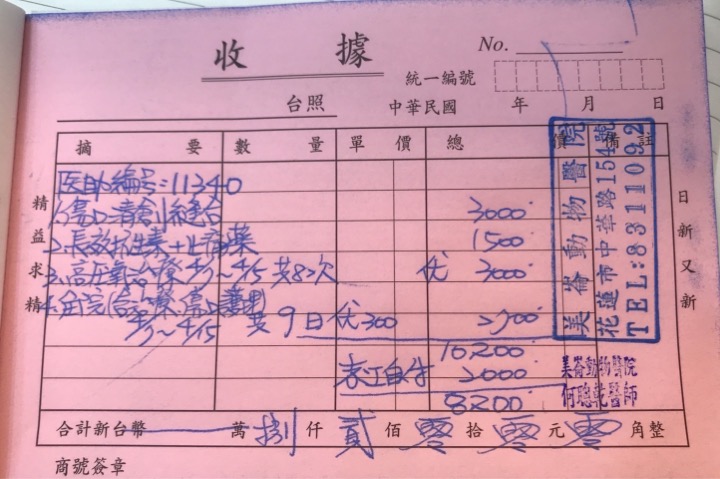 收據
No.
統一編號
台照 中華民國 年 月 日
摘要 數量 單價 總價 備註
医助編号:11340
1.傷口清創縫合 3000
2.長效抗生素+止痛藥 1500
3.高压氧治療 4/7~4/15 共8次 优 3000
4.住院(含治療、傷口護理)
4/7~4/15 共9日 优300 2700
10,200
表江自付 2000
8200
合計新台幣 萬 捌 仟 貳 佰 零 拾 零 元 零 角整
商號簽章
精益求精
日新又新
美崙動物醫院
花蓮市中華路154號
TEL:8311092
美崙動物醫院
何聰乾醫師